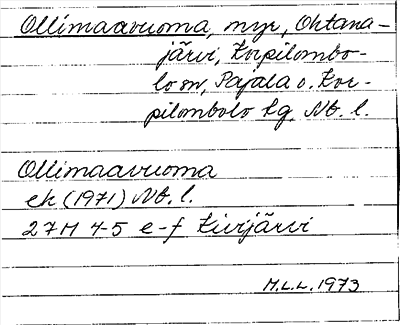 Ollimaavuoma, myr, Ohtana-
järvi, Korpilombo-
lo sn, Pajala o. Kor-
pilombolo tg, Nb. l.
Ollimaavuoma
ek (1971) Nb. l.
27M 4-5 e-f Kivijärvi
M.L.L. 1973